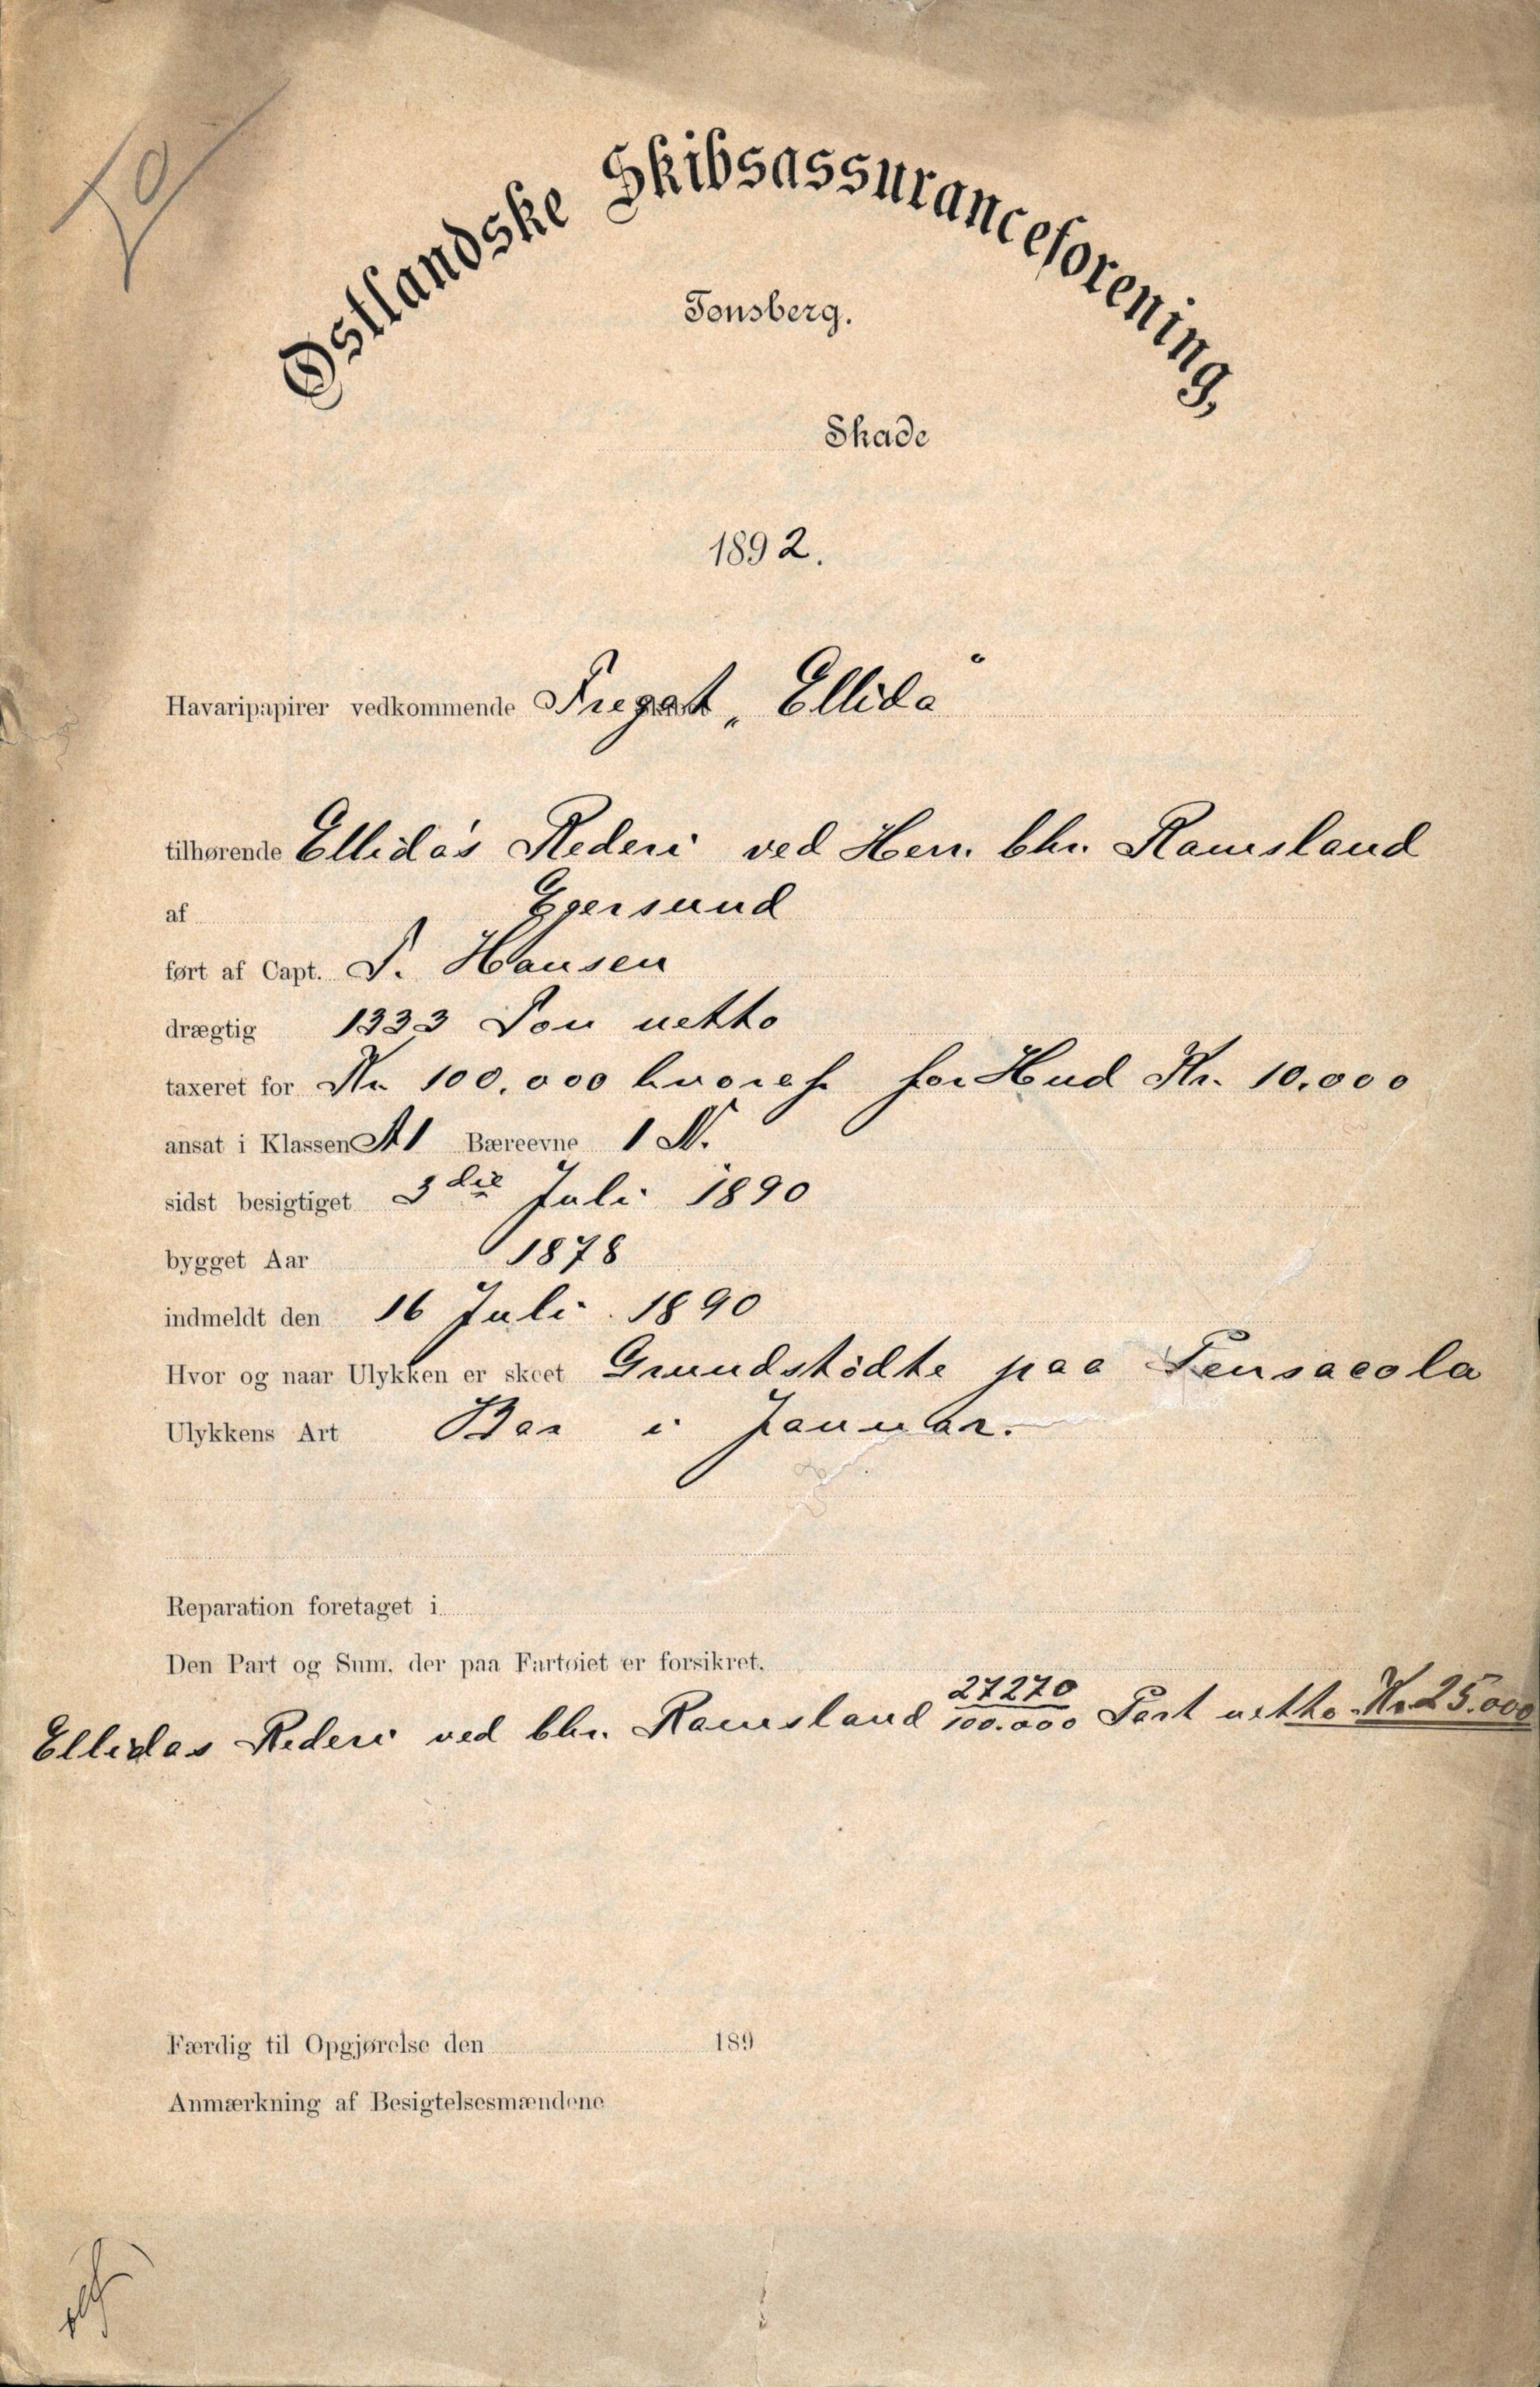 Østlandske Skibsassuranceforening,
Tønsberg.
Skade
1892.
Havaripapirer vedkommende Fregat „Ellida“
tilhørende Ellida's Rederi ved Herr Chr. Ramsland
af Egersund
ført af Capt. T. Hansen
drægtig 1333 Ton netto
taxeret for Kr 100.000 hvoraf for Hud Kr. 10.000
ansat i Klassen A1 Bæreevne 1 N.
sidst besigtiget 3die Juli 1890
bygget Aar 1878
indmeldt den 16 Juli 1890
Hvor og naar Ulykken er skeet Grundstødte paa Pensacola
Ulykkens Art Bar i Januar.
Reparation foretaget i
Den Part og Sum, der paa Fartøiet er forsikret.
Ellidas Rederi ved Chr. Ramsland 27270/100.000 Part netto Kr 25.000
Færdig til Opgjørelse den 189
Anmærkning af Besigtelsesmændene